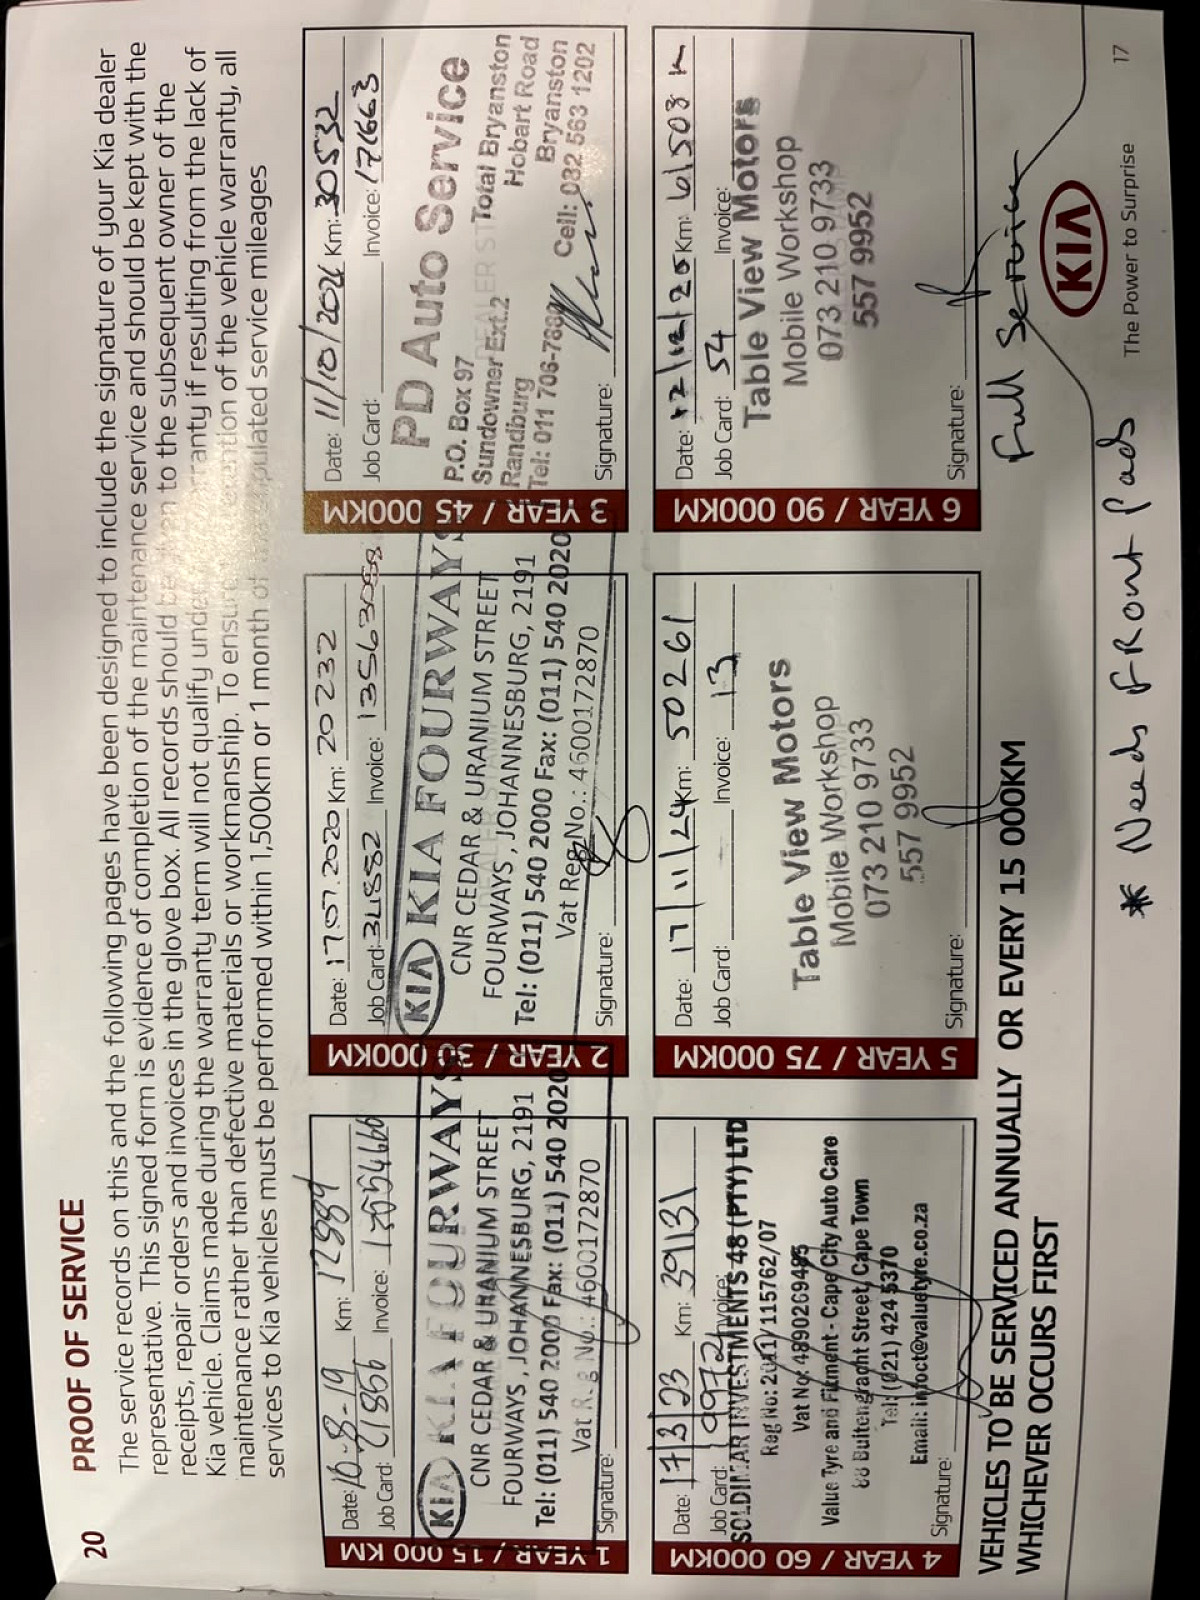 20 PROOF OF SERVICE
The service records on this and the following pages have been designed to include the signature of your Kia dealer
representative. This signed form is evidence of completion of the maintenance service and should be kept with the
receipts, repair orders and invoices in the glove box. All records should be to the subsequent owner of the
Kia vehicle. Claims made during the warranty term will not qualify under if resulting from the lack of
maintenance rather than defective materials or workmanship. To ensure of the vehicle warranty, all
services to Kia vehicles must be performed within 1,500km or 1 month of service mileages
1 YEAR / 15 000 KM
Date: 10-8-19 Km:
Job Card: Invoice:
KIA KIA FOURWAYS
CNR CEDAR & URANIUM STREET
FOURWAYS, JOHANNESBURG, 2191
Tel: (011) 540 2000 Fax: (011) 540 2020
Vat Reg No.: 4600172870
Signature:
2 YEAR / 30 000KM
Date: 17.07.2020 Km: 20232
Job Card: 34882 Invoice:
KIA KIA FOURWAYS
CNR CEDAR & URANIUM STREET
FOURWAYS, JOHANNESBURG, 2191
Tel: (011) 540 2000 Fax: (011) 540 2020
Vat Reg No.: 4600172870
Signature:
3 YEAR / 45 000KM
Date: 11/10/2021 Km: 30532
Job Card: Invoice: 171663
PD Auto Service
P.O. Box 97 Total Bryanston
Sundowner Ext.2 Hobart Road
Randburg Bryanston
Tel: 011 706-7880 Cell: 082 563 1202
Signature:
4 YEAR / 60 000KM
Date: 17/3/23 Km: 39131
Job Card: 9972 Invoice:
SOLDIMAR INVESTMENTS 48 (PTY) LTD
Reg No: 2011/115762/07
Vat No: 4890269485
Value Tyre and Fitment - Cape City Auto Care
88 Buitengracht Street, Cape Town
Tel: (021) 424 5370
Email: infoct@valuetyre.co.za
Signature:
5 YEAR / 75 000KM
Date: 17/11/24 Km: 50261
Job Card: Invoice: 13
Table View Motors
Mobile Workshop
073 210 9733
557 9952
Signature:
6 YEAR / 90 000KM
Date: 12/12/25 Km: 61503 K
Job Card: 54 Invoice:
Table View Motors
Mobile Workshop
073 210 9733
557 9952
Signature:
Full Service
VEHICLES TO BE SERVICED ANNUALLY OR EVERY 15 000KM
WHICHEVER OCCURS FIRST
KIA
* Needs FRont Pads
The Power to Surprise
17